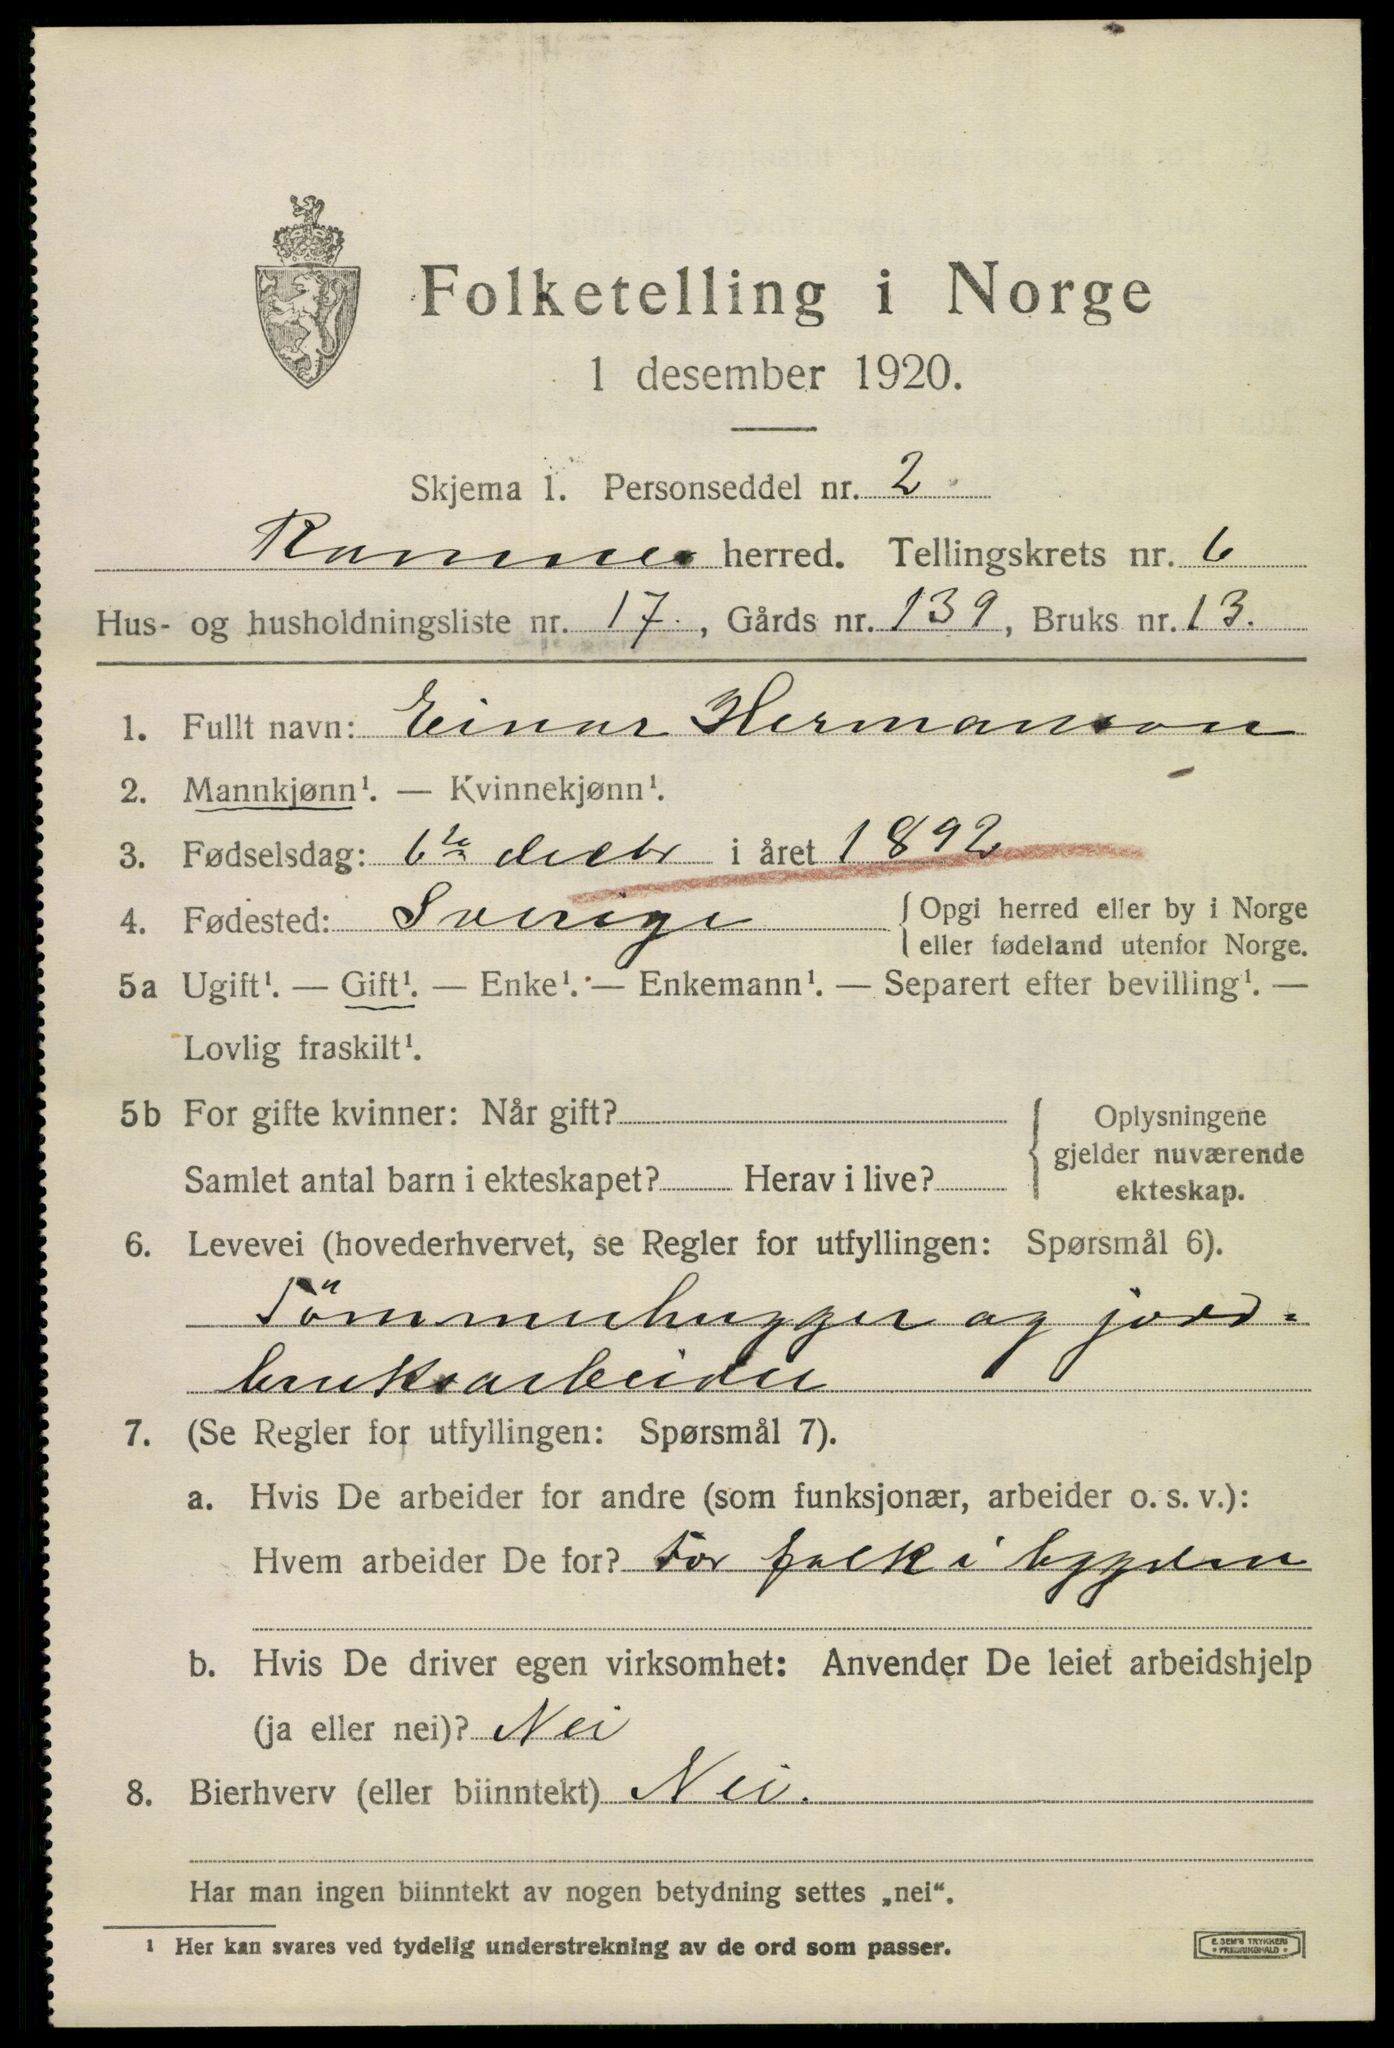 Folketelling i Norge
1 desember 1920.
Skjema 1. Personseddel nr. 2
Ramnes herred. Tellingskrets nr. 6
Hus- og husholdningsliste nr. 17., Gårds nr. 139, Bruks nr. 13.
1. Fullt navn: Einar Hermanson
2. Mannkjønn¹. — Kvinnekjønn¹.
3. Fødselsdag: 6te decbr i året 1892
4. Fødested: Sverige { Opgi herred eller by i Norge
eller fødeland utenfor Norge.
5a Ugift¹. — Gift¹. — Enke¹. — Enkemann¹. — Separert efter bevilling¹. —
Lovlig fraskilt¹.
5b For gifte kvinner: Når gift?
Samlet antal barn i ekteskapet? Herav i live?
{ Oplysningene
gjelder nuværende
ekteskap.
6. Levevei (hovederhvervet, se Regler for utfyllingen: Spørsmål 6).
Tömmerhugger og jord-
bruksarbeider
7. (Se Regler for utfyllingen: Spørsmål 7).
a. Hvis De arbeider for andre (som funksjonær, arbeider o. s. v.):
Hvem arbeider De for? For folk i bygden
b. Hvis De driver egen virksomhet: Anvender De leiet arbeidshjelp
(ja eller nei)? Nei
8. Bierhverv (eller biinntekt) Nei.
Har man ingen biinntekt av nogen betydning settes „nei“.
¹ Her kan svares ved tydelig understrekning av de ord som passer.
E. SEM'S TRYKKERI
FREDRIKSHALD